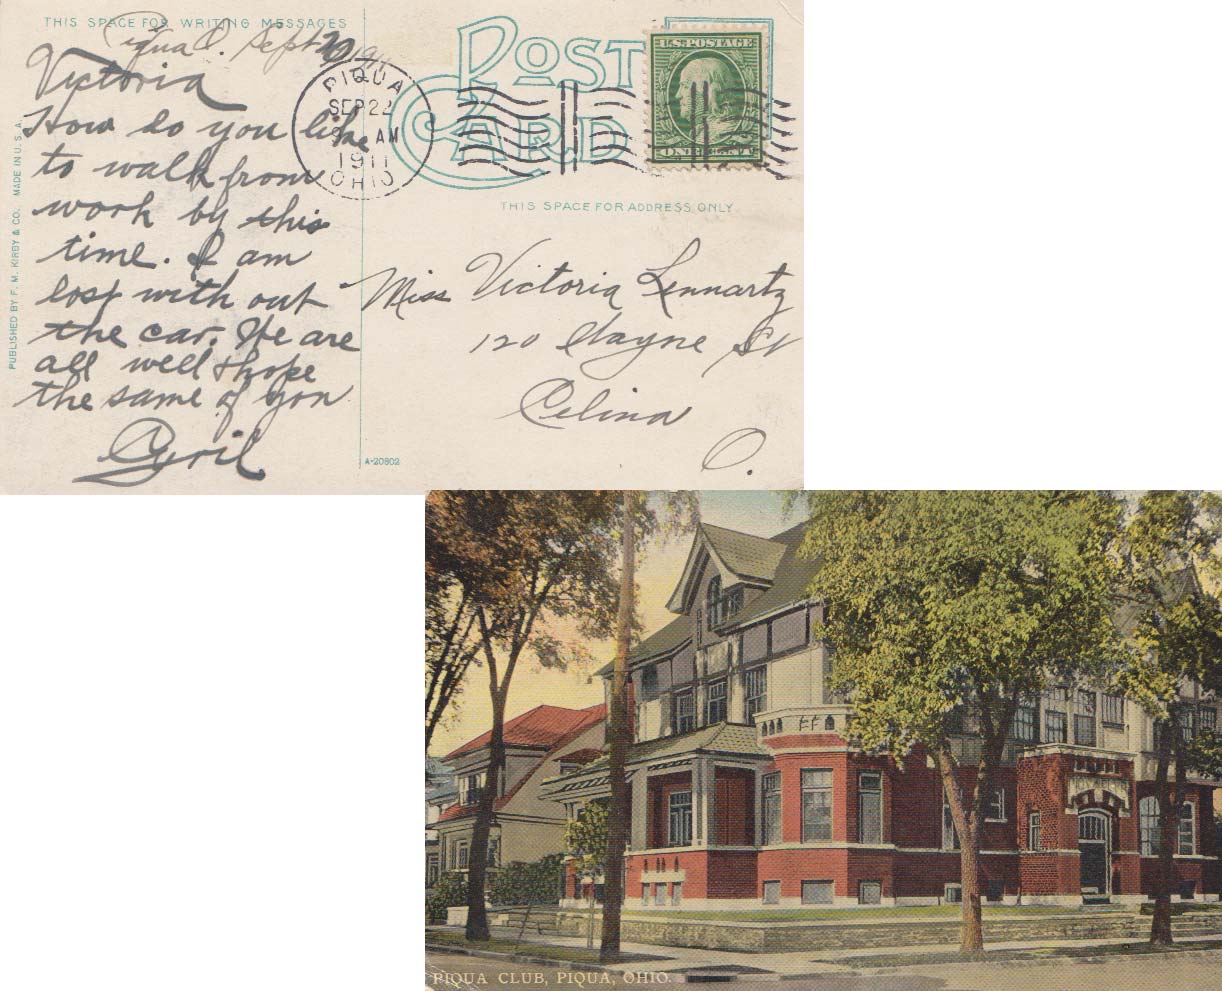 THIS SPACE FOR WRITING MESSAGES
Piqua O. Sept 1911
Victoria
How do you like
to walk from
work by this
time. I am
lost with out
the car. We are
all well & hope
the same of you
Cyril
PUBLISHED BY F. M. KIRBY & CO. MADE IN U.S.A.
PIQUA
SEP 22
AM
1911
OHIO
POST
CARD
U.S. POSTAGE
ONE CENT
THIS SPACE FOR ADDRESS ONLY
Miss Victoria Lennartz
120 Wayne St
Celina
O.
A-20802
PIQUA CLUB, PIQUA, OHIO.